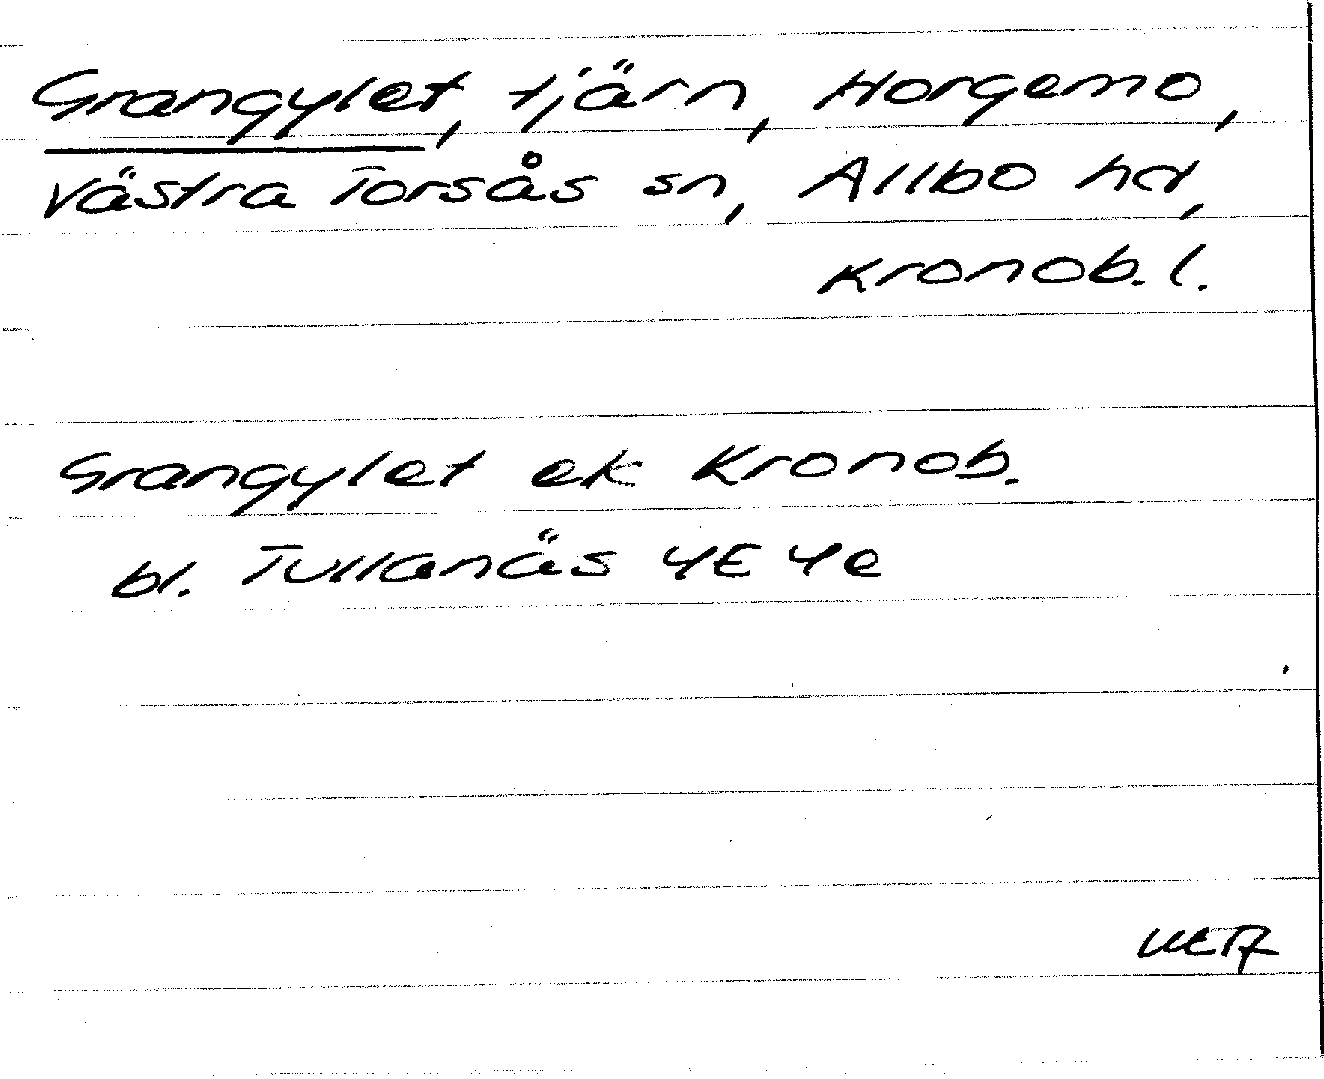 Grangylet, tjärn, Horgemo,
Västra Torsås sn, Allbo hd,
Kronob. l.
Grangylet ek Kronob.
bl. Tullanäs 4E 4e